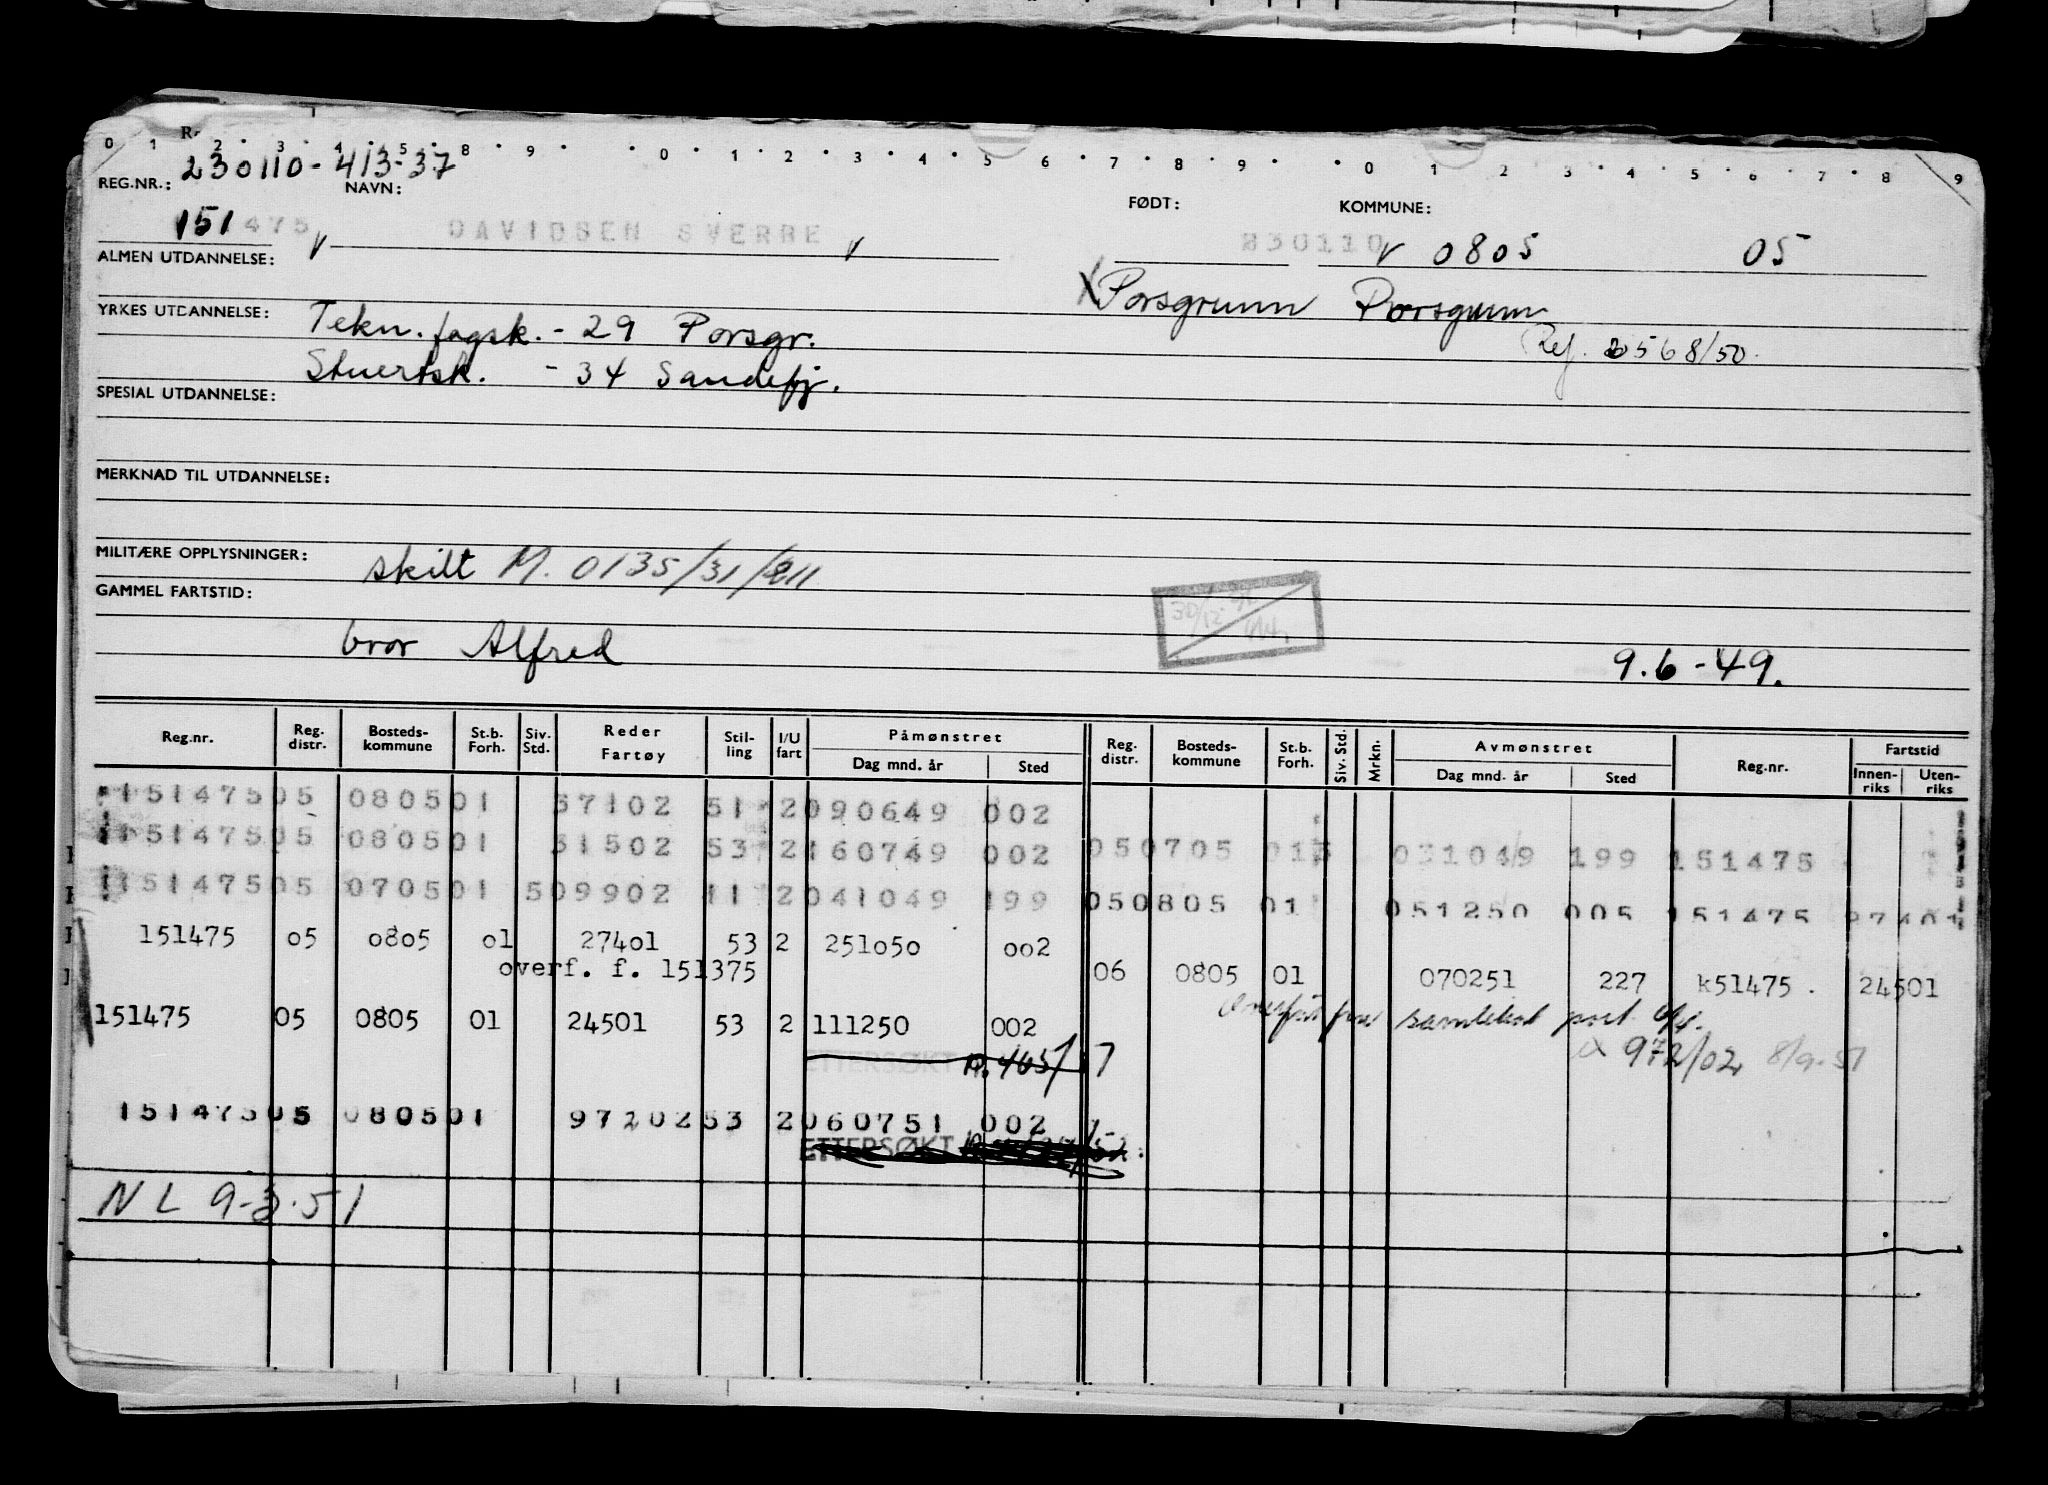 0 1 2 3 4 5 8 9 0 1 2 3 4 5 6 7 8 9 0 1 2 3 4 5 6 7 8 9
230110-413-37
REG.NR.: NAVN: FØDT: KOMMUNE:
151475 DAVIDSEN SVERRE 230110 0805 05
ALMEN UTDANNELSE:
Porsgrunn Porsgrunn
YRKES UTDANNELSE: Tekn. fagsk. - 29 Porsgr.
Ref. 2568/50.
Stuertsk. - 34 Sandefj.
SPESIAL UTDANNELSE:
MERKNAD TIL UTDANNELSE:
MILITÆRE OPPLYSNINGER: skilt M. 0135/31/211
GAMMEL FARTSTID:
30/12
bror Alfred
9.6-49.
Reg.nr. Reg. distr. Bosteds-kommune St.b. Forh. Siv. Std. Reder Fartøy Stil-ling I/U fart Påmønstret Dag mnd. år Sted Reg. distr. Bosteds-kommune St.b. Forh. Siv. Std. Mrkn. Avmønstret Dag mnd. år Sted Reg.nr. Fartstid Innen-riks Uten-riks
151475 05 0805 01 37102 51 2 090649 002
151475 05 0805 01 31502 53 2 160749 002 05 0705 01 031049 199 151475
151475 05 0705 01 509902 11 2 041049 199 05 0805 01 051250 005 151475 27401
151475 05 0805 01 27401 53 2 251050 002
overf. f. 151375 06 0805 01 070251 227 k51475 . 24501
151475 05 0805 01 24501 53 2 111250 002
Overført fra samlekort
ETTERSØKT 972/02 8/9-51
151475 05 0805 01 97202 53 2 060751 002
ETTERSØKT
NL 9-3-51